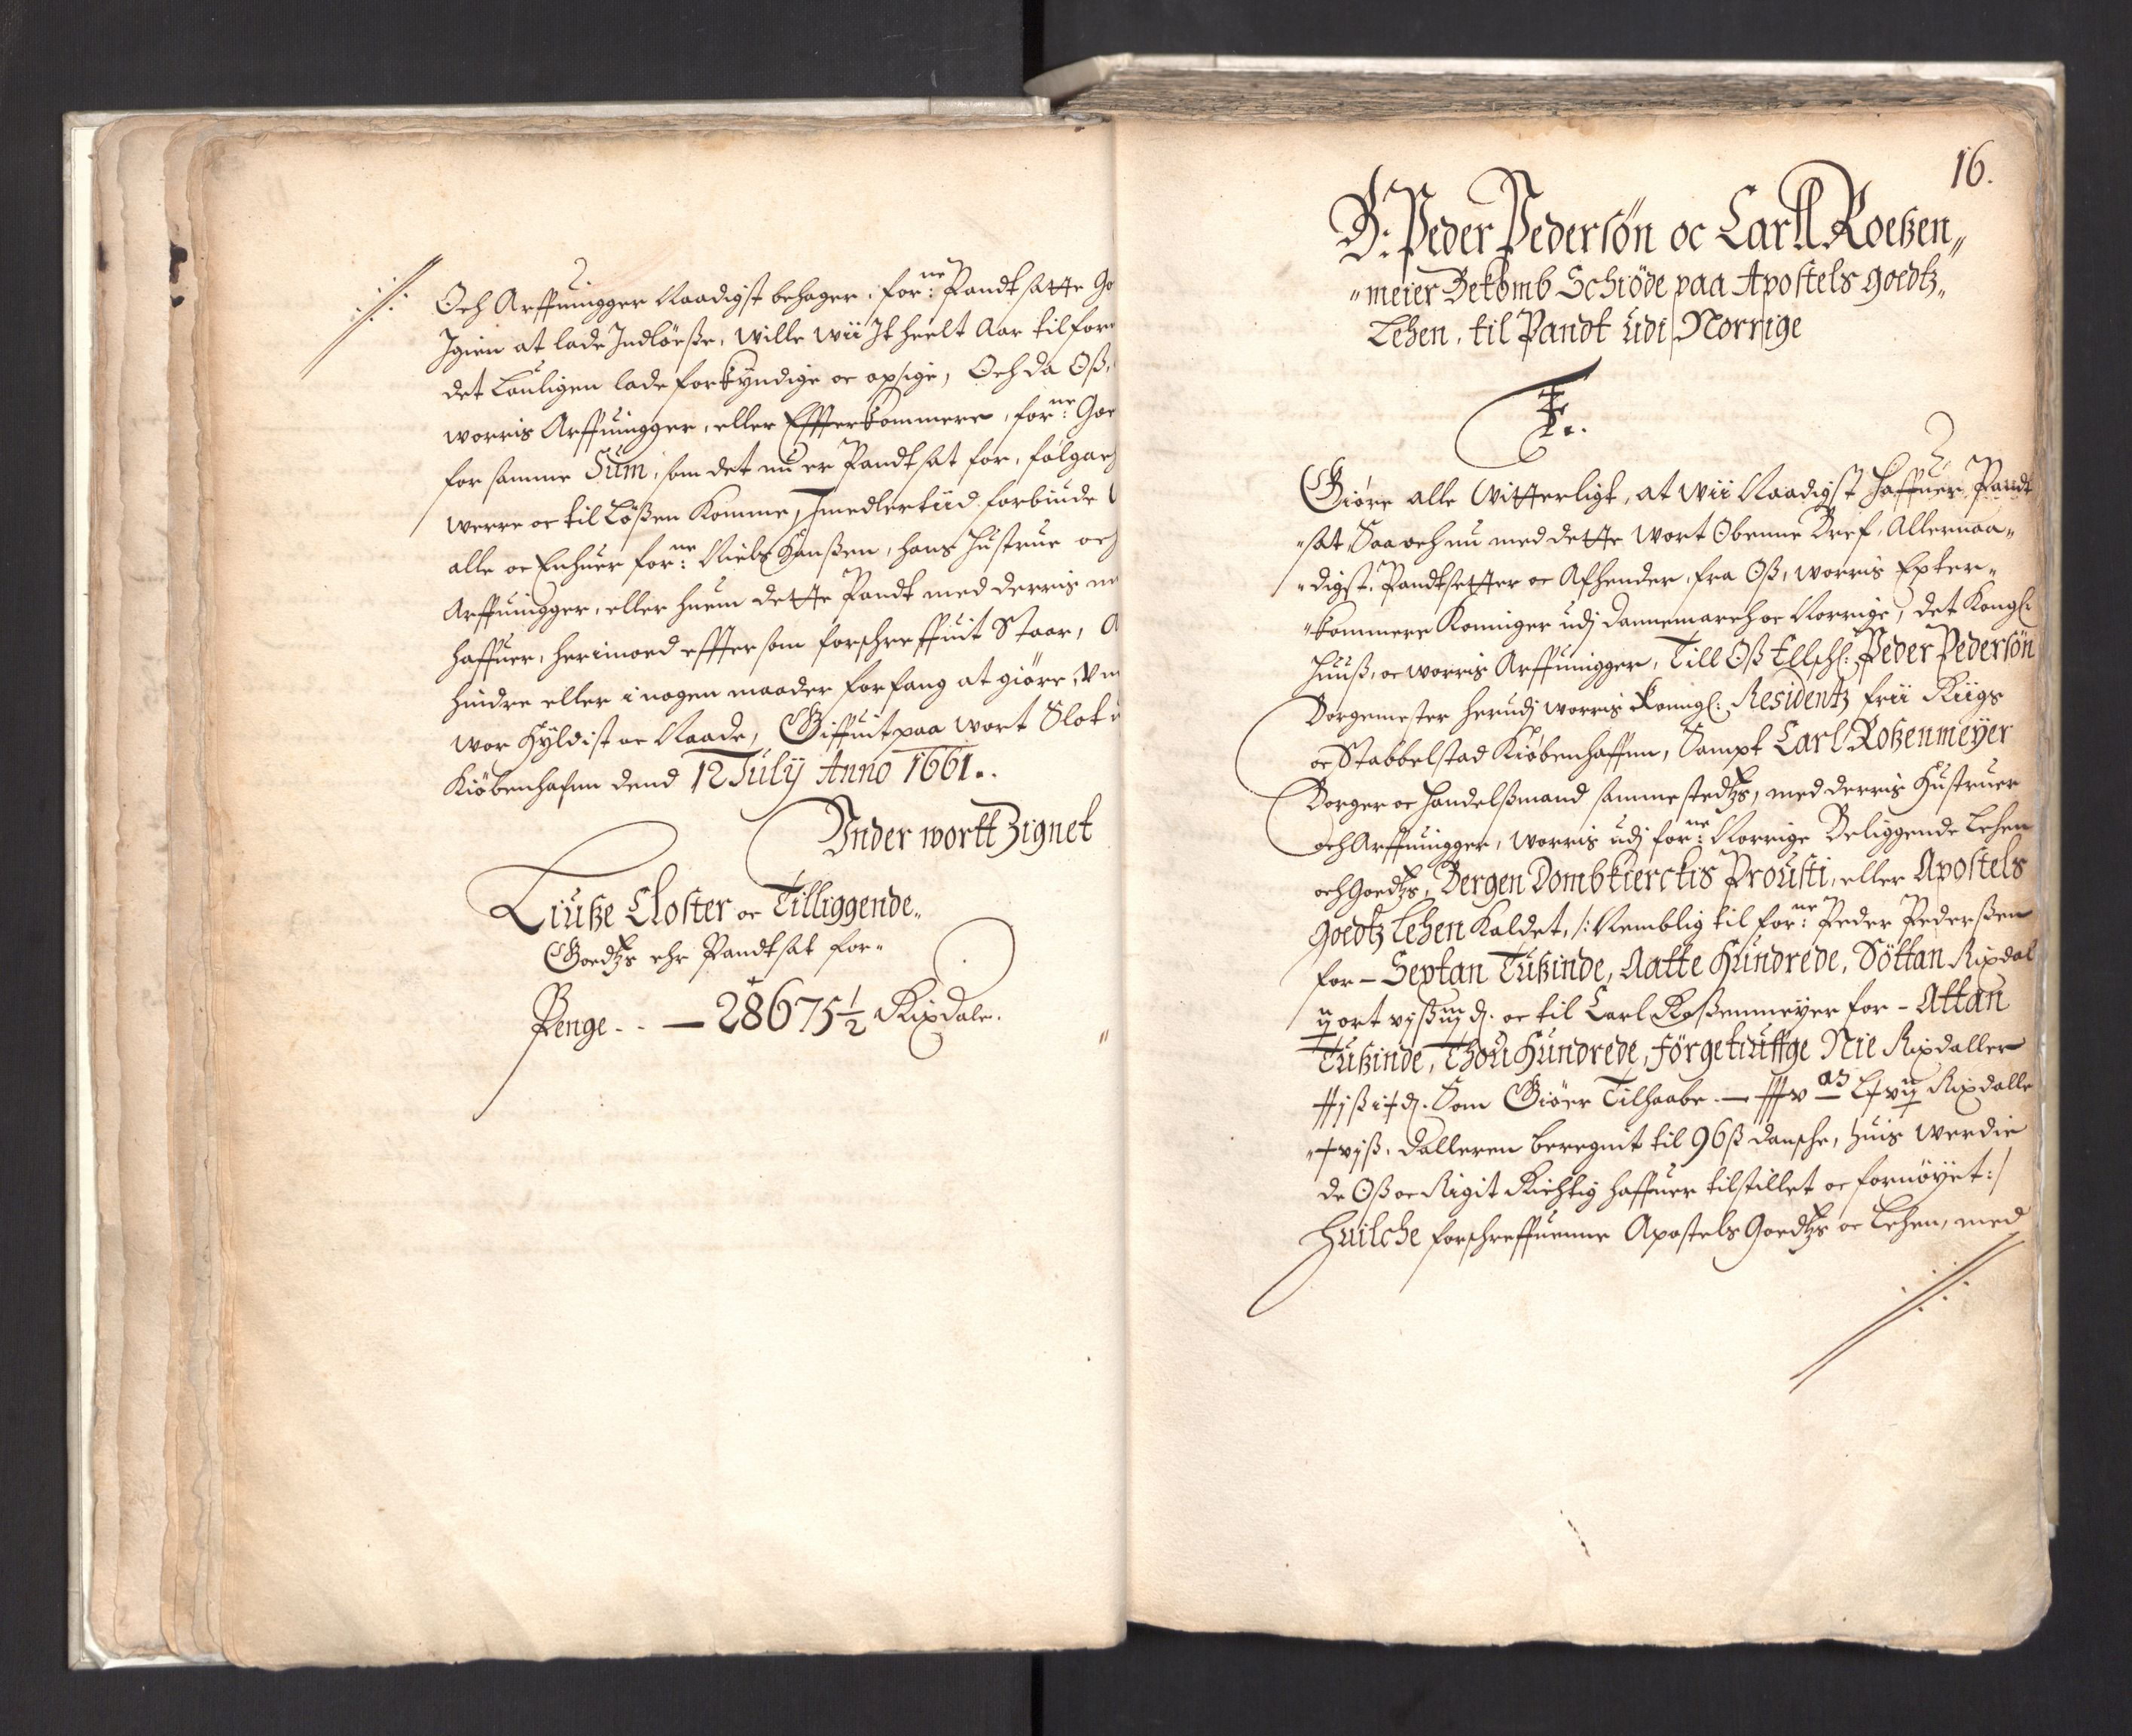 Och Arffuingger Naadigst behager, for:ne Pandtsatte Go
Igien at lade Indlöesse, wille wii It heelt Aar tilforn
det Lauligen lade forkyndige oc opsige, Och da Oß,
worris Arffuingger, eller Effterkommere, for:ne Goe
for samme Sum, som det nu er Pandtsat for, følgac
werre oc til Lößen Komme, Imedlertiid forbiude
alle oc Enhuer for:ne Niels Hanßen, hans Hustrue och
Arffuingger, eller huem dette Pandt med derris m
haffuer, herimoed effter som forschreffuit Staar, A
hindre eller i nogen maader forfang at giöre, Vn
wor Hyldist oc Naade, Giffuit paa wort Slot
Kiöbenhafun dend 12 Julÿ Anno 1661..
Vnder wortt Zignet
Liutze Closter oc Tilliggende„
Goedtzs ehr Pandtsat for-
Penge - - — 28675½ Rixdale.
16.
B: Peder Pedersön oc Carll Roetzen„
„meier Bekomb Schiöde paa Apostels goedtz„
Lehen, til Pandt udi Norrige
F. 3.
Giöre alle Witterligt, at wii Naadigst Haffuer Pandt
„sat, Saa och nu med dette wort Obenne Bref, Allernaa„
„digst, Pandtsetter oc Afhender, fra Oß, worris Efter„
„kommere Koninger udj Dannemarch oc Norrige, det Kongl:
Huuß, oc worris Arffuingger, Till Oß Ellschl: Peder Pedersön
Borgemester herudj worris Kongl: Residentz frii Riigs
oc Stabbelstad Kiöbenhaffun, Sampt Carl Rotzenmeÿer
Borger oc Handelßmand sammestedtzs, med derris Hustruer
och Arffuingger, worris udj for:ne Norrige Beliggende Lehen
och Goedtzs, Bergen Dombkierckis Prousti, eller Apostels
goedtz Lehen Kaldet, /: Nemblig til for:ne Peder Pederßen
for – Sextan Tußinde, Aatte Hundrede, Söttan Rixdal
ij ort vjß iiij d. oc til Carl Roßenmeyer for – Attan
Tußinde, Thou Hundrede, förgetiuffge Nie Rixdaller
Som Giöer Tilhaabe Rixdalle
xvjß, Dalleren beregnit til 96ß danske, huis werdie
de Oß oc Rigit Richtig haffuer tilstillet oc fornöyet :/
Huilche forschreffuenne Apostels Goedtzs oc Lehen, med